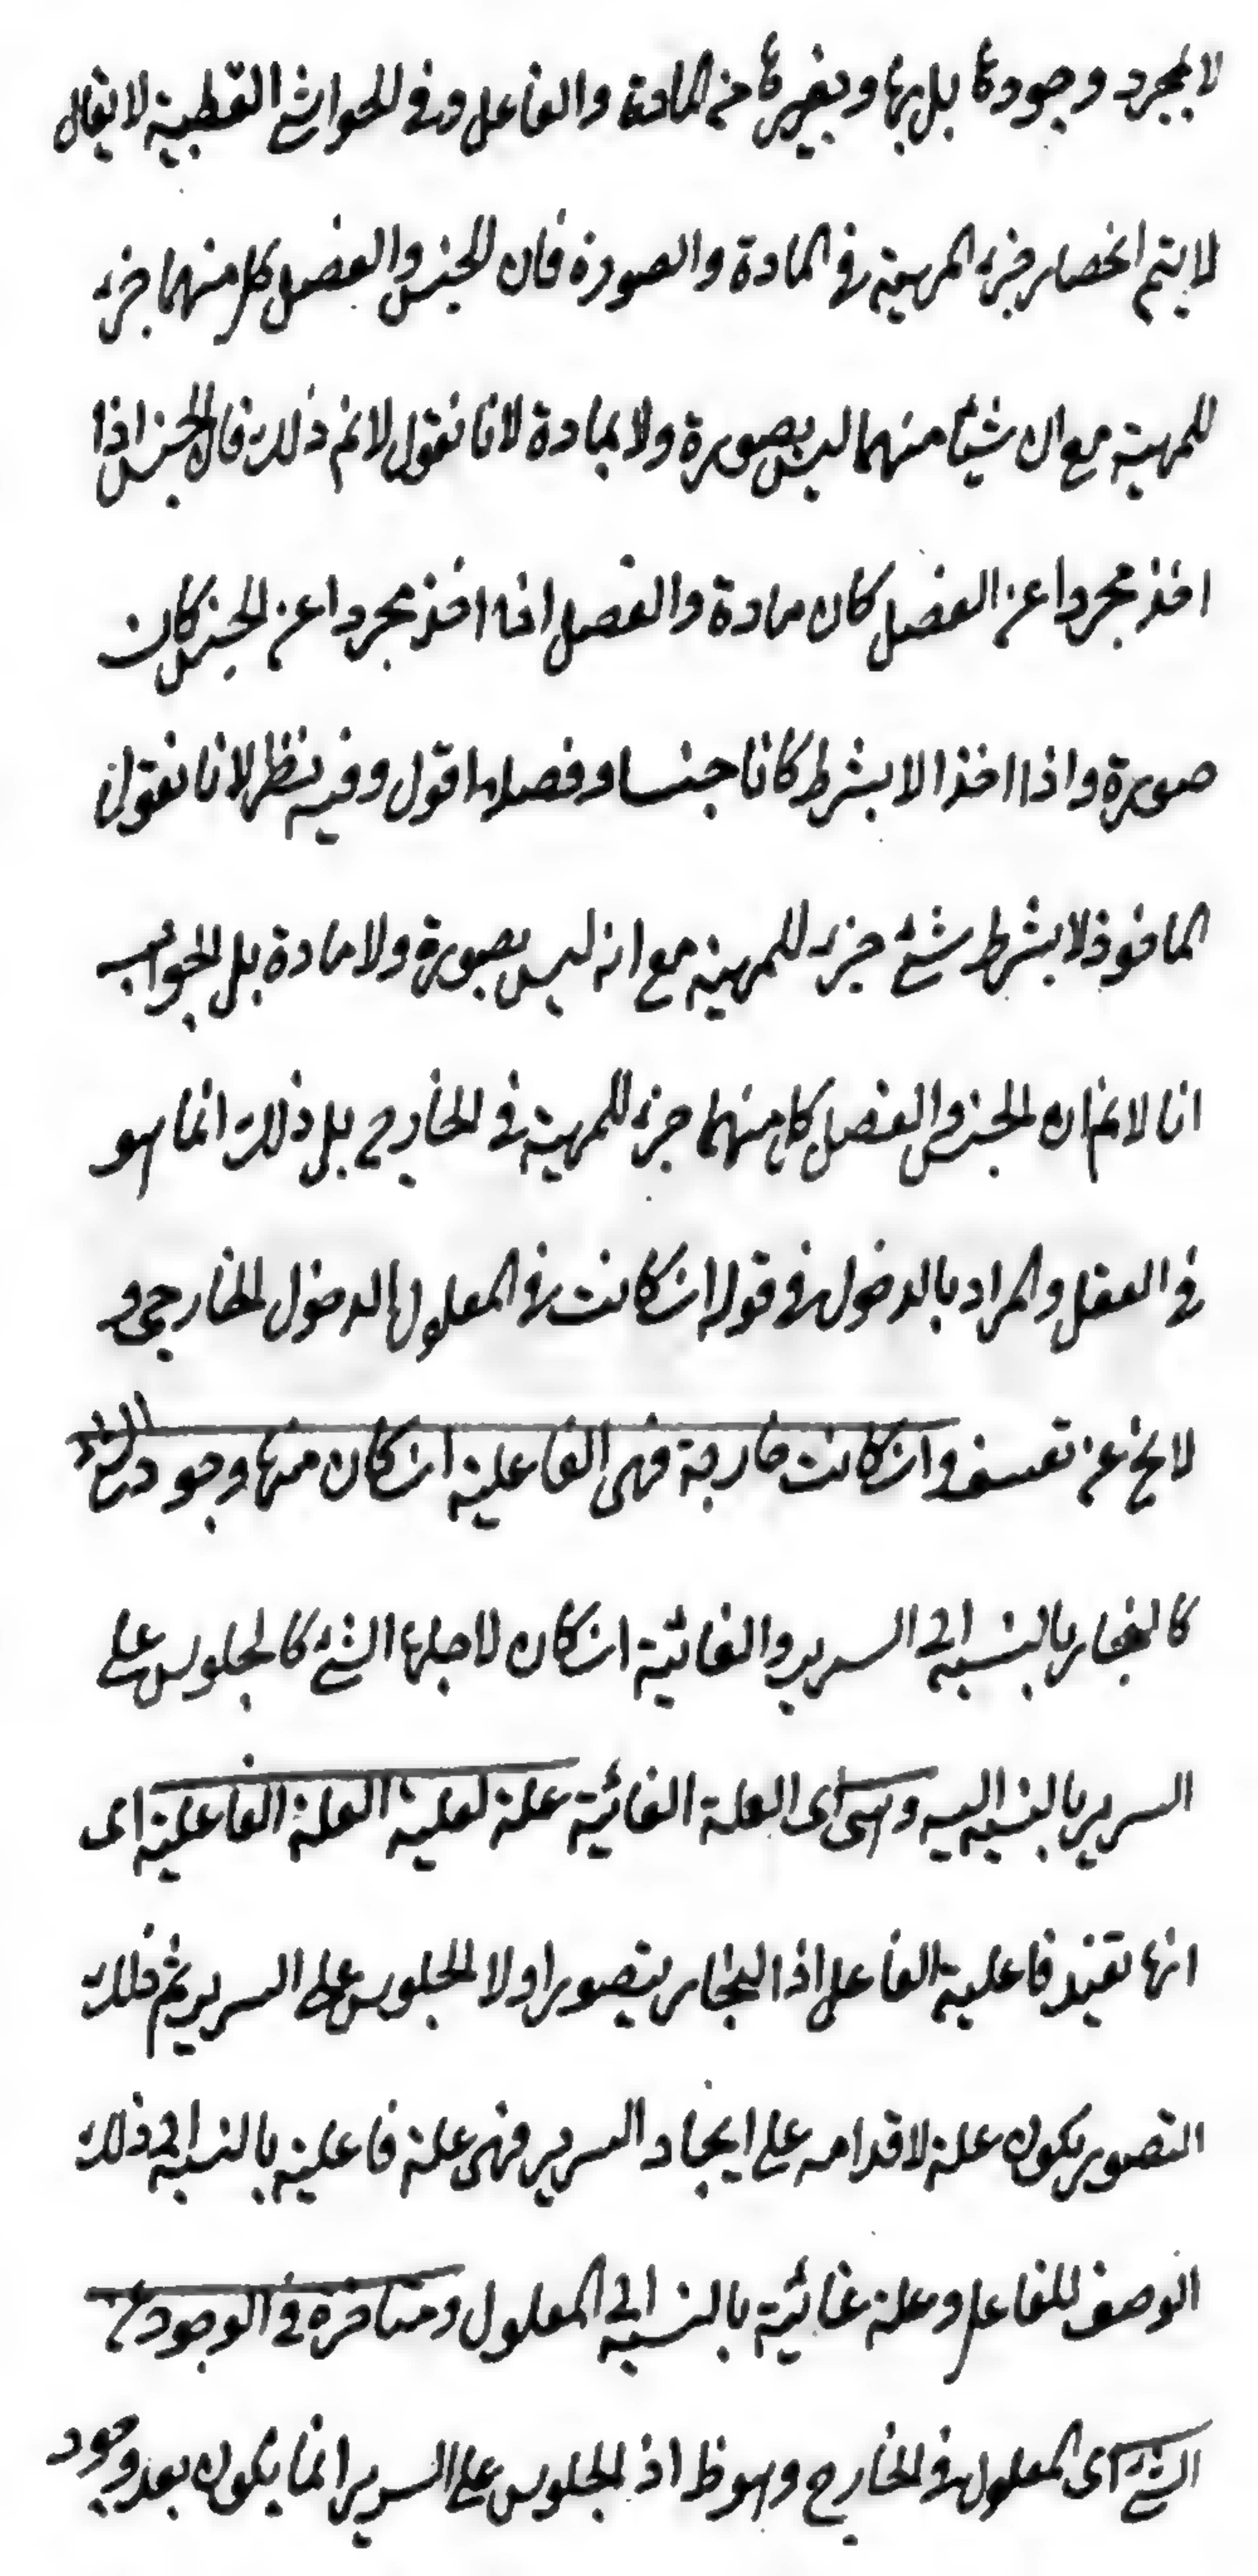 لا بمجرد وجودها بل بها وبغيرها من المادة والفاعل وفى الحواشى القطبية لا يقال
لا يتم انحصار جزء المهية فى المادة والصورة فان الجنس والفصل كل منهما جزء
للمهية مع ان شيئا منهما ليس بصورة ولا بمادة لانا نقول لانم ذلك فان الجنس اذا
اخذ مجردا عن الفصل كان مادة والفصل اذا اخذ مجردا عن الجنس كان
صورة واذا اخذا لا بشرط كانا جنسا وفصلا اقول وفيه نظر لانا نقول
الماخوذ لا بشرط شئ جزء للمهية مع انه ليس بصورة ولا مادة بل الجواب
انا لانم ان الجنس والفصل كل منهما جزء للمهية فى الخارج بل ذلك انما هو
فى العقل والمراد بالدخول فى قوله ان كانت فى المعلول الدخول الخارجى و
لا يخ عن تعسف وان كانت خارجة فهى الفاعلية ان كان منها وجود الشئ
كالنجار بالنسبة الى السرير والغائية ان كان لاجلها الشئ كالجلوس على
السرير بالنسبة اليه وهى اى العلة الغائية علة لعلية العلة الفاعلية اى
انها تفيد فاعلية الفاعل اذ النجار يتصور اولا الجلوس على السرير ثم ذلك
التصور يكون علة لاقدامه على ايجاد السرير فهى علة فاعلية بالنسبة الى ذلك
الوصف للفاعل وعلة غائية بالنسبة الى المعلول ومتاخرة فى الوجود عن
الشئ اى المعلول فى الخارج وهو ظ اذ الجلوس على السرير انما يكون بعد وجود